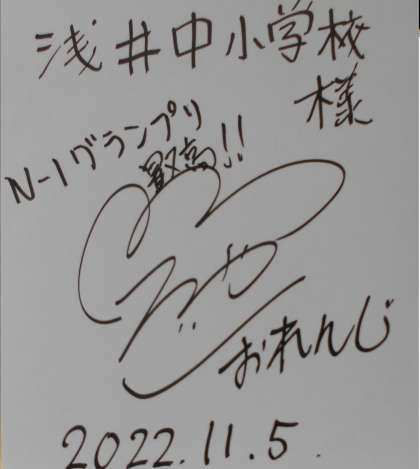 浅井中小学校
様
N-1グランプリ
最高!!
おれんじ
2022.11.5.